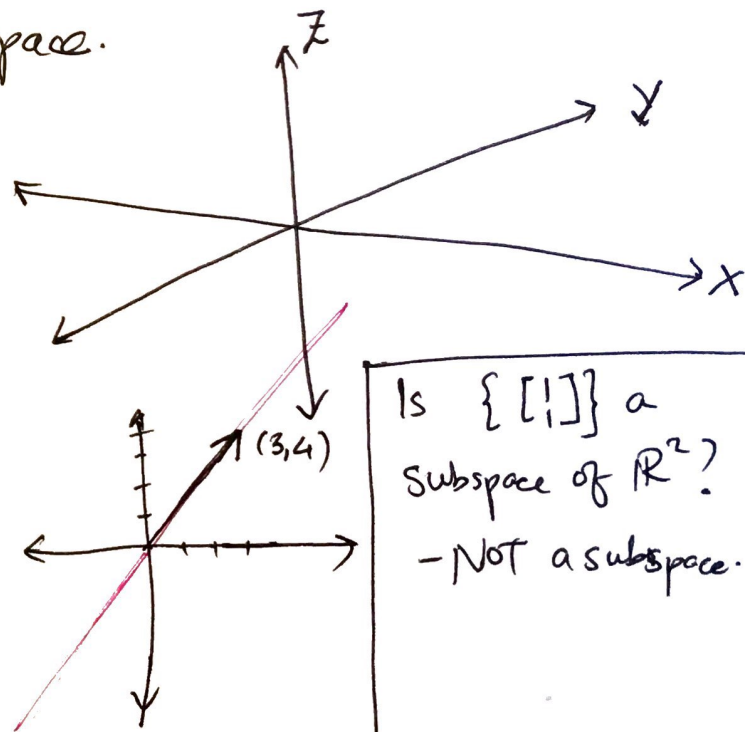 pace.
Z
y
X
(3,4)
Is { [1 1] } a
subspace of ℝ²?
- NOT a subspace.